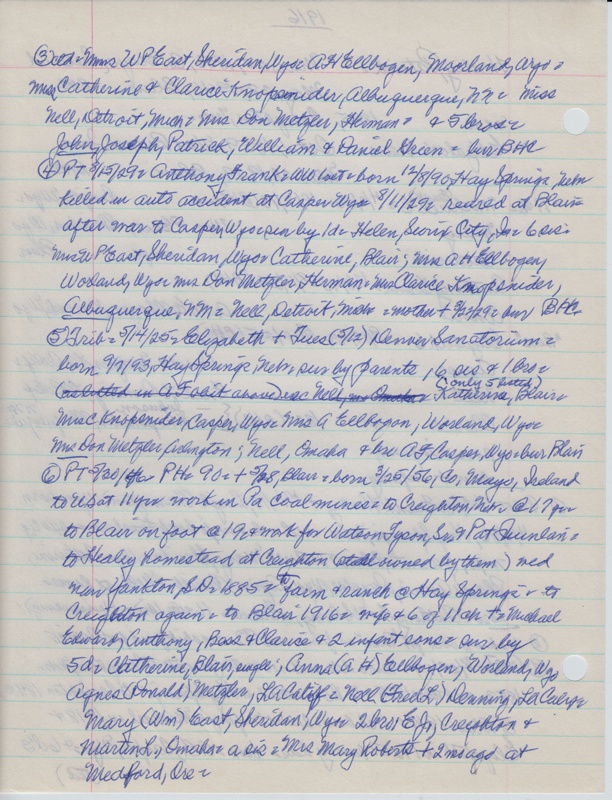 1916
③ Mrs WP East, Sheridan, Wyo= A H Ellbogen, Moorland, Wyo=
Catherine & Clarice Knopsnider, Albuquerque, NM= Miss
Nell, Detroit, Mich= Mrs Don Metzler, Herman= & 5 bros=
John, Joseph, Patrick, William & Daniel Green= bur BHC
④ PT 8/15/29= Anthony Frank= born 12/8/96, Hay Springs, Nebr=
killed in auto accident at Casper Wyo= 8/11/29= reared at Blair=
after war to Casper, Wyo= sur by 1d= Helen, Sioux City, Ia= 6 sis=
Mrs W P East, Sheridan, Wyo= Catherine, Blair; Mrs A H Ellbogen,
Worland, Wyo= Mrs Don Metzler, Herman= Mrs Clarice Knopsnider,
Albuquerque, NM= Nell, Detroit, Mich= mother + 3/2/29= bur BHC=
⑤ Trib= 5/14/25= Elizabeth + Tues (5/12) Denver Sanatorium=
born 9/7/93, Hay Springs, Nebr= sur by parents, 6 sis & 1 bro=
(as listed in A F obit above) (only 5 listed) Katherine, Blair=
Mrs C Knopsnider, Casper, Wyo= Mrs A Ellbogen, Worland, Wyo=
Mrs Don Metzler, Arlington; Nell, Omaha & bro A F Casper, Wyo= bur Blair
⑥ PT 5/30/ PH= 90= + 5/28, Blair= born 3/25/56, Co, Mayo, Ireland
to US at 11yr= work in Pa coal mines= to Creighton, Nebr @ 17 yr
to Blair on foot @ 19= work for Watson Tyson, Sr, & Pat Quinlan=
to Healey Homestead at Creighton ( owned by them) wed
near Yankton, S.D= 1885= to farm & ranch @ Hay Springs= to
Creighton again= to Blair 1916= wife & 6 of 11 ch += Michael
Edward, Anthony, Bess & Clarice & 2 infant sons= sur by
5d= Catherine, Blair, single; Anna (A H) Ellbogen, Worland, Wyo
Agnes (Donald) Metzler, LaCalif= Nell (Fred L.) Denning, La Calif=
Mary (Wm) East, Sheridan, Wyo= 2 bro; E J, Creighton &
Martin L, Omaha= a sis= Mrs Mary Roberts + 2 mo ago at
Medford, Ore=